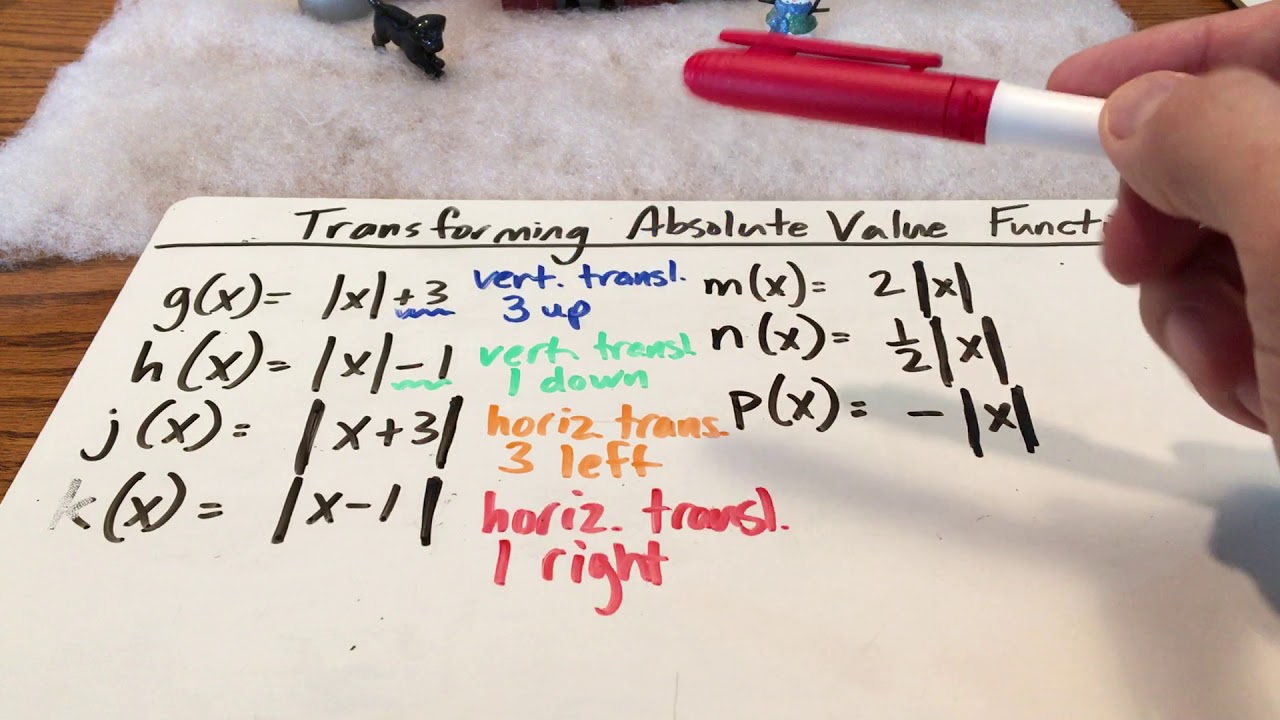 Transforming Absolute Value Functi
g(x)= |x|+3 vert. transl.
3 up
h(x)= |x|-1 vert. transl
1 down
j(x)= |x+3| horiz trans.
3 left
k(x)= |x-1| horiz. transl.
1 right
m(x)= 2|x|
n(x)= ½|x|
p(x)= -|x|